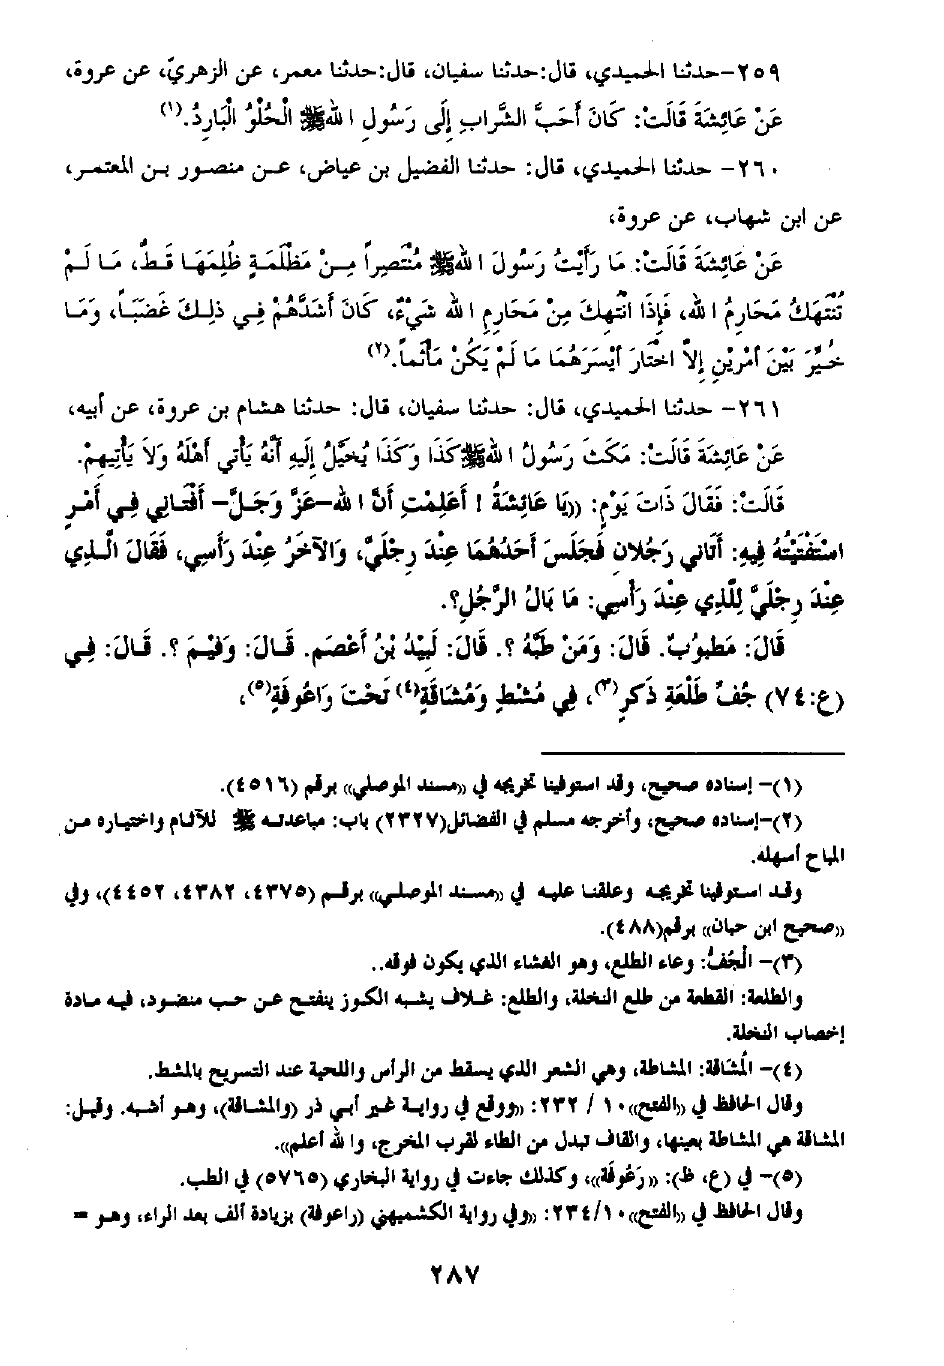 ٢٥٩-حدثنا الحميدي، قال:حدثنا سفيان، قال:حدثنا معمر، عن الزهريّ، عن عروة،
عَنْ عَائِشَةَ قَالَتْ: كَانَ أَحَبَّ الشَّرَابِ إِلَى رَسُولِ اللهِ ﷺ الْحُلْوُ الْبَارِدُ.(١)
٢٦٠- حدثنا الحميدي، قال: حدثنا الفضيل بن عياض، عن منصور بن المعتمر،
عن ابن شهاب، عن عروة،
عَنْ عَائِشَةَ قَالَتْ: مَا رَأَيْتُ رَسُولَ اللهِ ﷺ مُنْتَصِراً مِنْ مَظْلَمَةٍ ظُلِمَهَا قَطُّ، مَا لَمْ
تُنْتَهَكْ مَحَارِمُ اللهِ، فَإِذَا انْتُهِكَ مِنْ مَحَارِمِ اللهِ شَيْءٌ، كَانَ أَشَدَّهُمْ فِي ذلِكَ غَضَبَاً، وَمَا
خُيِّرَ بَيْنَ أَمْرَيْنِ إِلاَّ اخْتَارَ أَيْسَرَهُمَا مَا لَمْ يَكُنْ مَأْثَماً.(٢)
٢٦١- حدثنا الحميدي، قال: حدثنا سفيان، قال: حدثنا هشام بن عروة، عن أبيه،
عَنْ عَائِشَةَ قَالَتْ: مَكَثَ رَسُولُ اللهِ ﷺ كَذَا وَكَذَا يُخَيَّلُ إِلَيهِ أَنَّهُ يَأْتي أَهْلَهُ وَلاَ يَأْتِيهِمْ.
قَالَتْ: فَقَالَ ذَاتَ يَوْمٍ: ((يَا عَائِشَةُ ! أَعَلِمْتِ أَنَّ اللهَ-عَزَّ وَجَلَّ- أَفْتَانِي فِي أَمْرٍ
اسْتَفْتَيْتُهُ فِيهِ: أَتَانِي رَجُلانِ فَجَلَسَ أَحَدُهُمَا عِنْدَ رِجْلَيَّ، وَالآخَرُ عِنْدَ رَأسِي، فَقَالَ الَّذِي
عِنْدَ رِجْلَيَّ لِلَّذِي عِنْدَ رَأْسِي: مَا بَالُ الرَّجُلِ؟.
قَالَ: مَطْبُوبٌ. قَالَ: وَمَنْ طَبَّهُ ؟. قَالَ: لَبِيْدُ بْنُ أَعْصَمِ. قَالَ: وَفِيْمَ ؟. قَالَ: فِي
(ع:٧٤) جُفِّ طَلْعَةِ ذَكَرٍ(٣)، فِي مُشْطٍ وَمُشَاقَةٍ(٤) تَحْتَ رَاعُوفَةٍ(٥)،
(١)- إسناده صحيح، وقد استوفينا تخريجه في ((مسند الموصلي)) برقم (٤٥١٦).
(٢)-إسناده صحيح، وأخرجه مسلم في الفضائل(٢٣٢٧) باب: مباعدته ﷺ للآثام واختياره من
المباح أسهله.
وقد استوفينا تخريجه وعلقنا عليه في ((مسند الموصلي)) برقم (٤٣٧٥، ٤٣٨٢، ٤٤٥٢)، وفي
((صحيح ابن حبان)) برقم(٤٨٨).
(٣)- الْجُفُّ: وعاء الطلع، وهو الغشاء الذي يكون فوقه..
والطلعة: القطعة من طلع النخلة، والطلع: غلاف يشبه الكوز ينفتح عن حب منضود، فيه مادة
إخصاب النخلة.
(٤)- الْمُشَاقة: المشاطة، وهي الشعر الذي يسقط من الرأس واللحية عند التسريح بالمشط.
وقال الحافظ في ((الفتح))١٠ / ٢٣٢: ((ووقع في رواية غير أبي ذر (والمشاقة)، وهو أشبه. وقيل:
المشاقة هي المشاطة بعينها، والقاف تبدل من الطاء لقرب المخرج، والله أعلم)).
(٥)- في (ع، ظ): ((رَعُوفَة))، وكذلك جاءت في رواية البخاري (٥٧٦٥) في الطب.
وقال الحافظ في ((الفتح))١٠/٢٣٤: ((وفي رواية الكشميهني (راعوفة) بزيادة ألف بعد الراء، وهو =
٢٨٧